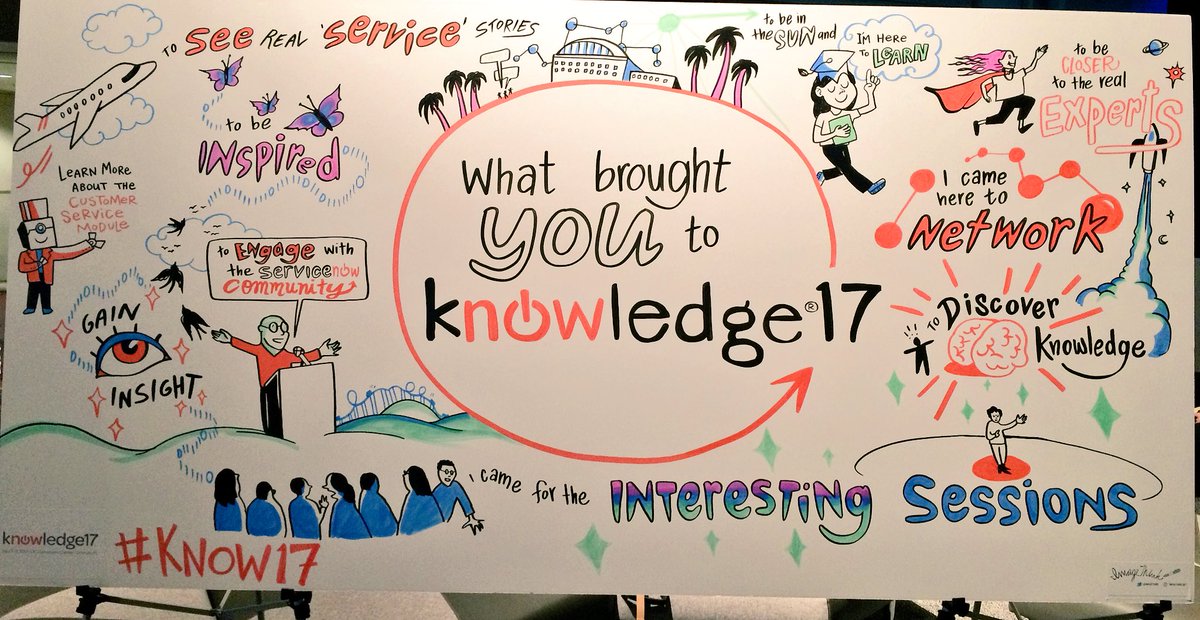 TO SEE REAL 'SERVICE' STORIES
to be
INSPIRED
LEARN MORE
ABOUT THE
CUSTOMER
SERVICE
MODULE
to ENGAGE with
the servicenow
community
GAIN
INSIGHT
What brought
you to
knowledge®17
to be in
the SUN and
I'M HERE
TO LEARN
to be
CLOSER
to the real
EXPERTS
I came
here to
NETWORK
TO DISCOVER
Knowledge
I came for the INTERESTING SESSIONS
knowledge17
#KNOW17
ImageThink